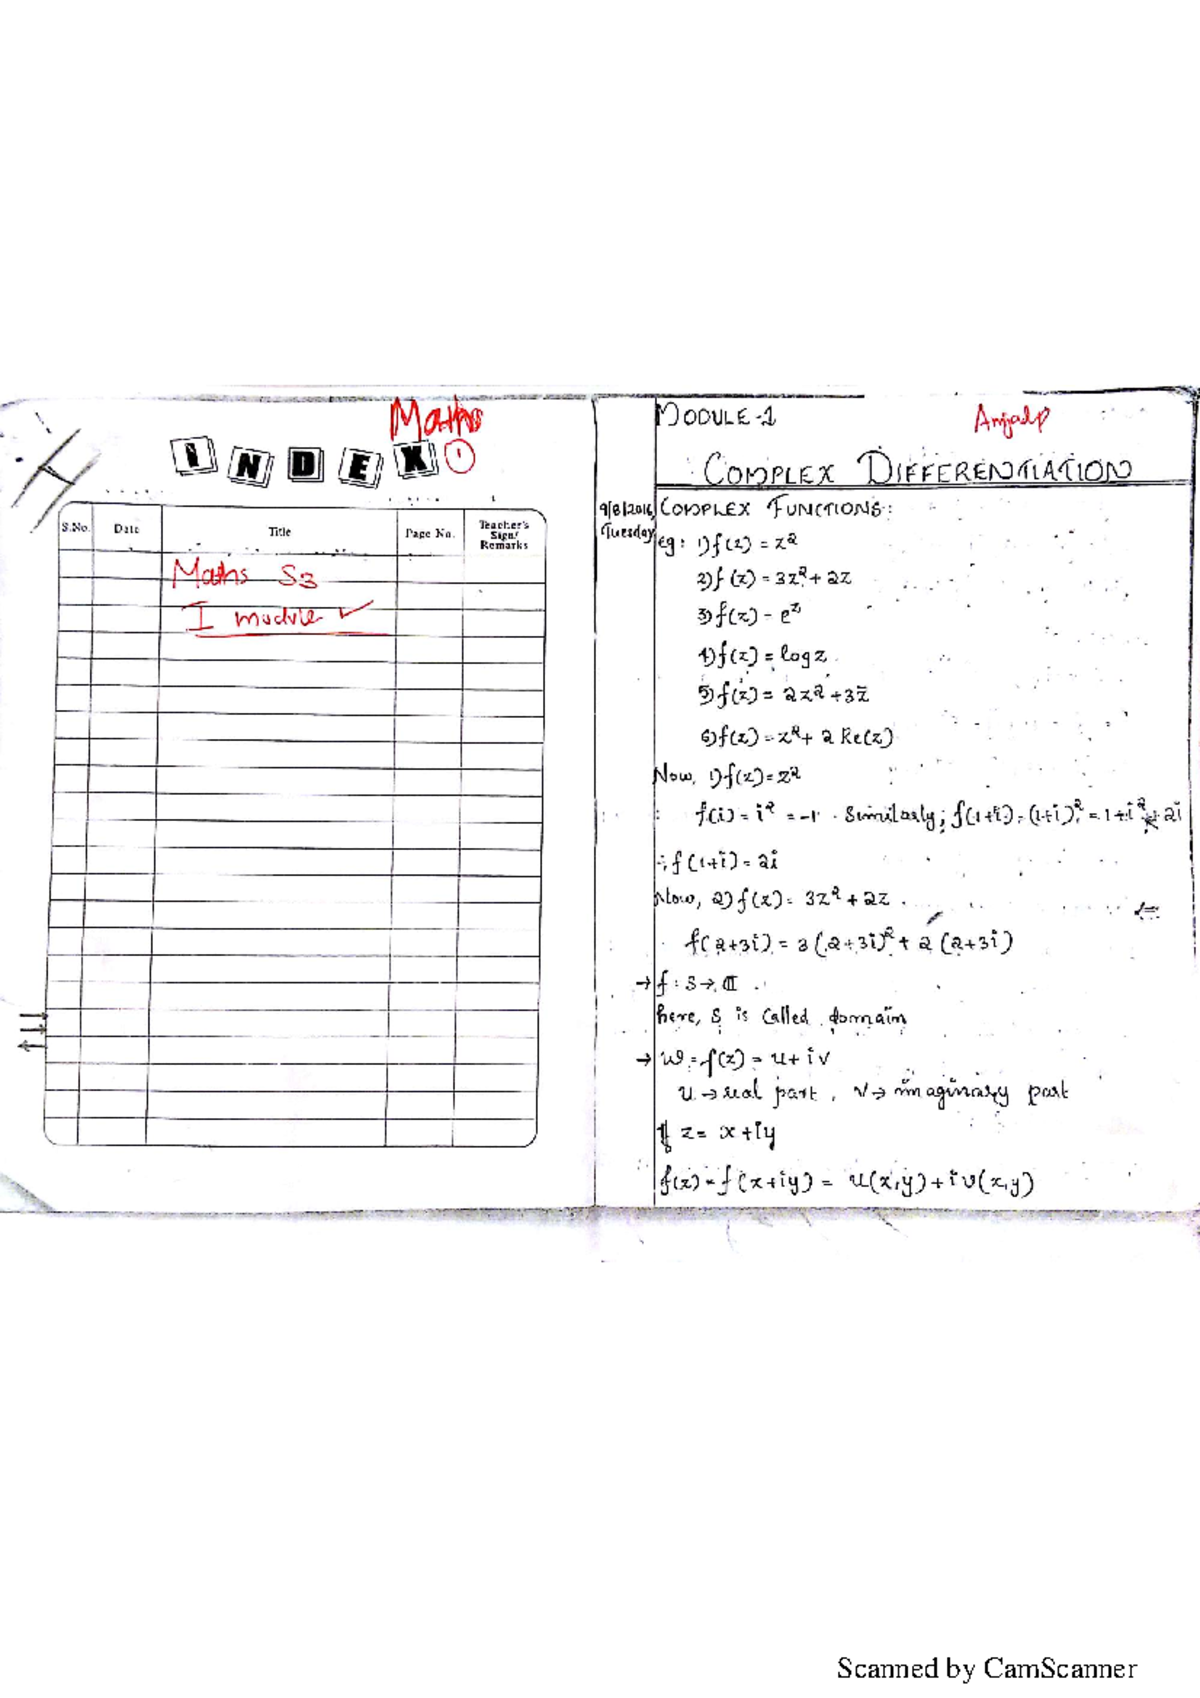 Maths
INDEX 1
S.No. Date Title Page No. Teacher's Sign/ Remarks
Maths S3
I module ✓
MODULE-1
COMPLEX DIFFERENTIATION
9/8/2016, Tuesday
COMPLEX FUNCTIONS:
eg: 1) f(z) = z²
2) f(z) = 3z² + 2z
3) f(z) = e^z
4) f(z) = log z
5) f(z) = 2z² + 3z̄
6) f(z) = z² + 2 Re(z)
Now, 1) f(z) = z²
f(i) = i² = -1. Similarly; f(1+i) = (1+i)² = 1+i²+2i
∴ f(1+i) = 2i
Now, 2) f(z) = 3z² + 2z.
f(2+3i) = 3(2+3i)² + 2(2+3i)
→ f : S → ℂ
here, S is called domain
→ w = f(z) = u + iv
u → real part, v → imaginary part
If z = x + iy
f(z) = f(x+iy) = u(x,y) + i v(x,y)
Scanned by CamScanner